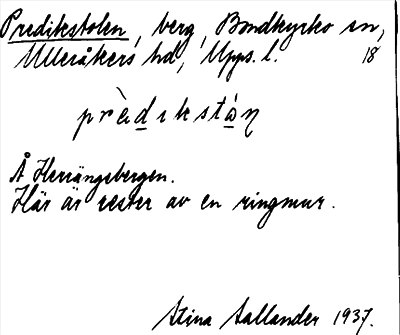 Predikstolen, berg, Bondkyrko sn,
Ulleråkers hd, Upps. l. 18
prèdɩkstá̀n
Å Herrängsbergen.
Här är rester av en ringmur.
Stina Sallander 1937.